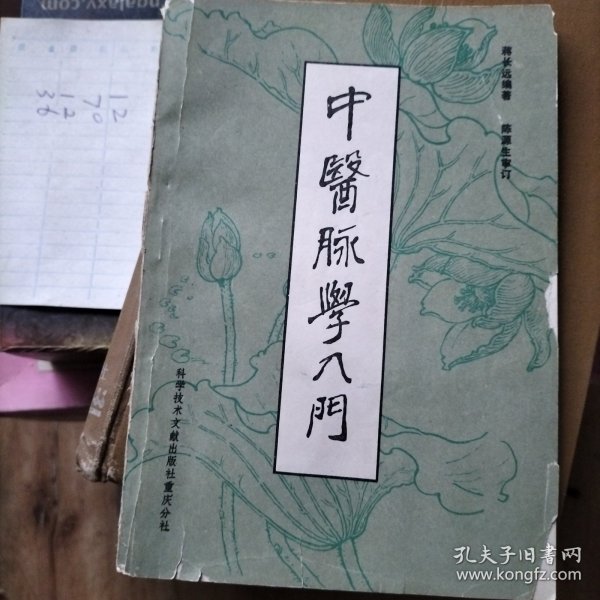 ngalaxy.com)
12
70
12
36
蒋长远编著 陈源生审订
中醫脉學入門
科学技术文献出版社重庆分社
孔夫子旧书网
www.kongfz.com